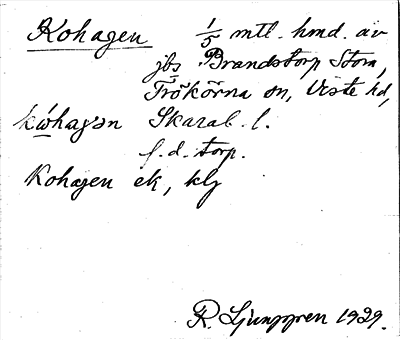 Kohagen 1/5 mtl. hmd. av
jbs Brandstorp Stora,
Trökörna sn, Viste hd,
Skarab. l.
f. d. torp.
Kohagen ek, klg
R. Ljunggren 1929.